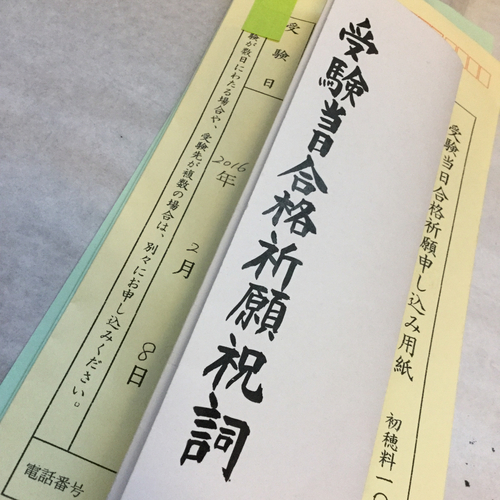 受験当日合格祈願申し込み用紙
初穂料一〇
受験当日合格祈願祝詞
受験日
2016年2月8日
験が数日にわたる場合や、受験先が複数の場合は、別々にお申し込みください。
電話番号